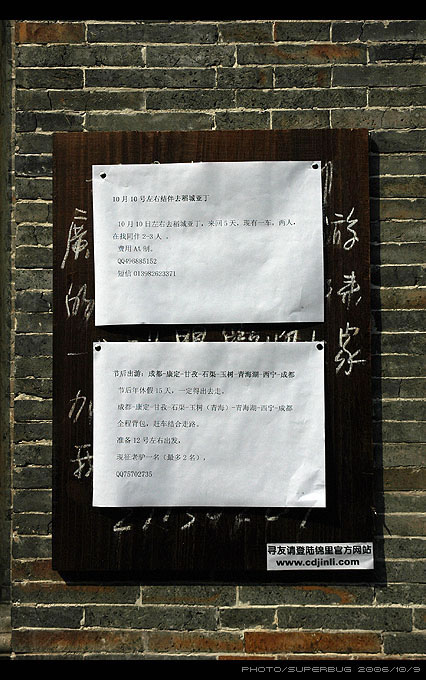 10月10号左右结伴去稻城亚丁
10月10日左右去稻城亚丁，来回5天，现有一车，两人，
在找同伴2-3人 。
费用AA制。
QQ496885152
短信013982623371
廣
的
一
加
游
家
节后出游：成都-康定-甘孜-石渠-玉树-青海湖-西宁-成都
节后年休假15天，一定得出去走。
成都-康定-甘孜-石渠-玉树（青海）-青海湖-西宁-成都
全程背包，赶车结合走路。
准备12号左右出发，
现征老驴一名（最多2名），
QQ75702735
寻友请登陆锦里官方网站
www.cdjinli.com
PHOTO/SUPERBUG 2006/10/9